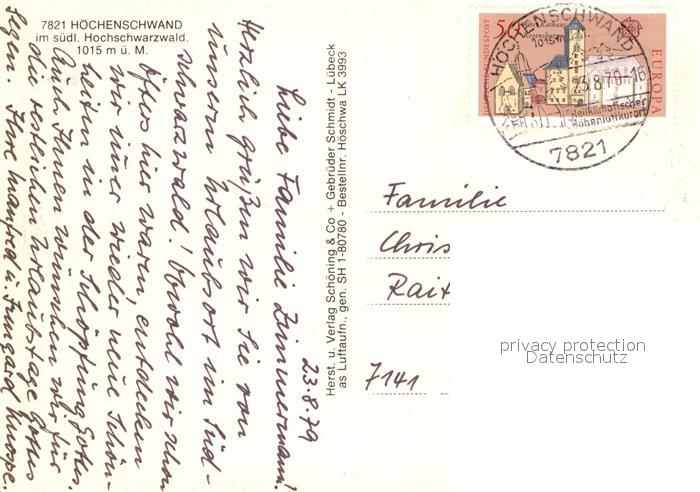 7821 HÖCHENSCHWAND
im südl. Hochschwarzwald.
1015 m ü. M.
23.8.79
Liebe Familie Zimmermann!
Herzlich grüßen wir Sie von
unserm Urlaubsort im Süd-
schwarzwald! Obwohl wir schon
öfters hier waren, entdecken
wir immer wieder neue Schön-
heiten in der Schöpfung Gottes.
Auch Ihnen wünschen wir für
die restlichen Urlaubstage Gottes
Segen. Ihre Manfred u. Irmgard Knospe.
Herst. u. Verlag Schöning & Co + Gebrüder Schmidt - Lübeck
as Luftaufn., gen. SH 1-80780 - Bestellnr. Höschwa LK 3993
DEUTSCHE BUNDESPOST
50
Altes Rathaus
Regensburg
EUROPA
HÖCHENSCHWAND
1015m
23.8.79-16
Heilklimatischer
Höhenluftkurort
7821
Familie
Chris
Rait
7141
privacy protection
Datenschutz